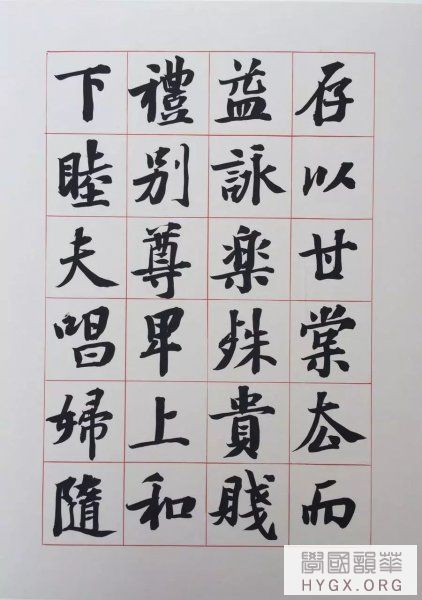 存以甘棠去而
益詠樂殊貴賤
禮别尊卑上和
下睦夫唱婦隨
學國韻華
HYGX.ORG